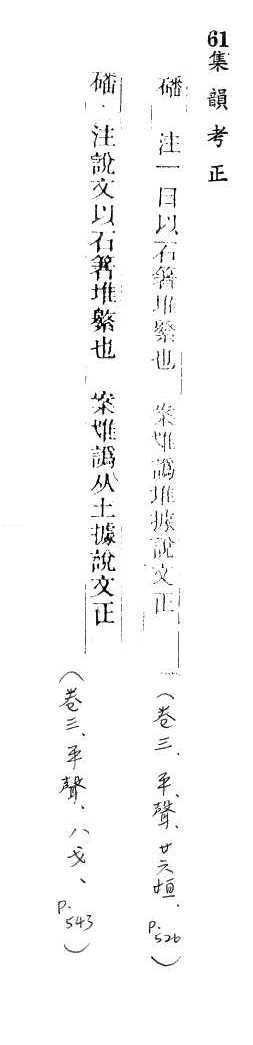 61集韻考正
磻 注一曰以石箸堆繁也 案隿譌堆據說文正
(卷三、平聲、廿六桓、P.526)
磻 注說文以石箸堆繁也 案隿譌从土據說文正
(卷三、平聲、八戈、P.543)